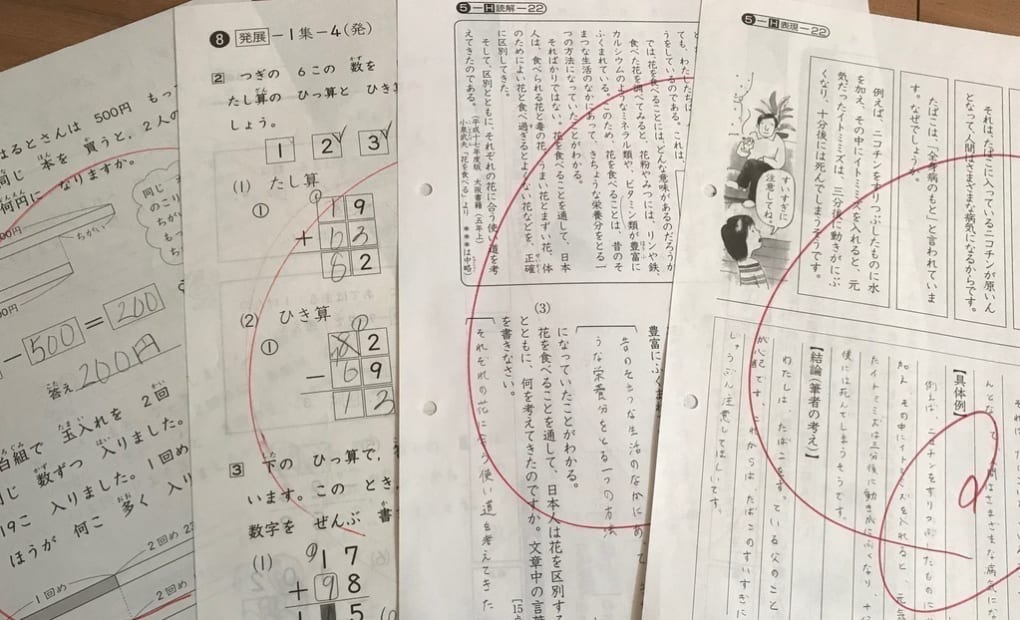 はるとさんは 500円 もっ
同じ 本を 買うと、2人の
何円に なりますか。
同じ
のこり
ちがい
ちがい
500
=
200
答え 200円
白組で 玉入れを 2回
同じ 数ずつ 入りました。
19こ 入りました。1回め
ほうが 何こ 多く 入り
2回め
1回め
2回め
8 発展-1集-4(発)
2 つぎの 6この 数を
たし算の ひっ算と ひき
しょう。
1 2 3
(1) たし算
① 19
+ 63
82
(2) ひき算
① 82
- 69
13
3 下の ひっ算で、
います。この とき、
数字を ぜんぶ 書
(1)
17
+ 98
5
5-H 読解-22
ても、わたしたちは
うをしているのである。これは、
では、花を食べることには、どんな意味があるのだろうか
食べた花を調べてみると、花粉やみつには、リンや鉄、
カルシウムのようなミネラル類や、ビタミン類が豊富に
ふくまれている。このため、花を食べることは、昔のそ
まつな生活のなかにあって、きちょうな栄養分をとる一
つの方法になっていたことがわかる。
そればかりではない。花を食べることを通して、日本
人は、食べられる花と毒の花、うまい花とまずい花、体
のためによい花と食べ過ぎるとよくない花などを、正確
に区別してきた。
そして、区別とともに、それぞれの花に合う使い道を考
えてきたのである。
(平成十七年度版 大阪書籍(五年上)
小泉武夫「花を食べる」より ＊＊＊は中略)
豊富にふくまれ
昔のそまつな生活のなかにあっ
うな栄養分をとる一つの方法
になっていたことがわかる。
(3) 花を食べることを通して、日本人は花を区別する
とともに、何を考えてきたのですか。文章中の言葉
を書きなさい。
[15
それぞれの花に合う使い道を考えてきた
5-H 表現-22
それは、たばこに入っているニコチンが原いん
となって、人間はさまざまな病気になるからです。
たばこは、「全病のもと」と言われていま
す。なぜでしょうか。
例えば、ニコチンをすりつぶしたものに水
を加え、その中にイトミミズを入れると、元
気だったイトミミズは、三分後に動きがにぶ
くなり、十分後には死んでしまうそうです。
すいすぎに
注意してね。
んとなって、人間はさまざまな病気にな
【具体例】
例えば、ニコチンをすりつぶしたものに
加え、その中にイトミミズを入れると、元気
たイトミミズは三分後に動きがにぶくなり、十分
後には死んでしまうそうです。
【結論(筆者の考え)】
わたしは、たばこをすっている父のこと
が心配です。これからは、たばこのすいすぎに
じゅうぶん注意してほしいです。